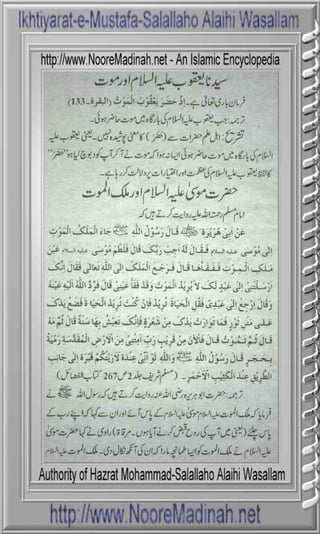 Ikhtiyarat-e-Mustafa-Salallaho Alaihi Wasallam
http://www.NooreMadinah.net - An Islamic Encyclopedia
سیدنا یعقوب علیہ السلام اور موت
فرمان باری تعالیٰ ہے۔ اِذْ حَضَرَ يَعْقُوْبَ الْمَوْتُ (البقرۃ۔133)
ترجمہ: جب یعقوب علیہ السلام کی بارگاہ میں موت حاضر ہوئی۔
تشریح: اہل علم حضرات سے (حضر) کا معنی پوشیدہ نہیں۔ یعنی یعقوب علیہ
السلام کی بارگاہ میں موت حاضر ہوئی ایسا نہ ہوا کہ موت نے آ کر آپ کو دبوچ لیا ہو "حضر"
کا لفظ یعقوب علیہ السلام کی عظمت اور اختیارات پر دلالت کر رہا ہے۔
حضرت موسیٰ علیہ السلام اور ملک الموت
امام مسلم رحمۃ اللہ علیہ روایت کرتے ہیں کہ
عَنْ اَبِیْ هُرَيْرَةَ قَالَ رَسُوْلُ اللّٰهِ ﷺ جَاءَ الْمَلَكُ الْمَوْتِ
اِلٰی مُوْسٰی علیہ السلام فَقَالَ لَهٗ اَجِبْ رَبَّكَ قَالَ فَلَطَمَ مُوْسٰی علیہ السلام عَيْنَ
مَلَكِ الْمَوْتِ فَفَقَأَهَا قَالَ فَرَجَعَ الْمَلَكُ اِلَی اللّٰهِ تَعَالٰی فَقَالَ اِنَّكَ
اَرْسَلْتَنِیْ اِلٰی عَبْدٍ لَكَ لَا يُرِيْدُ الْمَوْتَ وَقَدْ فَقَأَ عَيْنِیْ قَالَ فَرَدَّ اللّٰهُ اِلَيْهِ عَيْنَهٗ
وَقَالَ ارْجِعْ اِلٰی عَبْدِیْ فَقُلِ الْحَيَاةَ تُرِيْدُ فَاِنْ كُنْتَ تُرِيْدُ الْحَيَاةَ فَضَعْ يَدَكَ
عَلٰی مَتْنِ ثَوْرٍ فَمَا تَوَارَتْ يَدُكَ مِنْ شَعْرَةٍ فَاِنَّكَ تَعِيْشُ بِهَا سَنَةً قَالَ ثُمَّ مَهْ
قَالَ ثُمَّ تَمُوْتُ قَالَ فَالْاٰنَ مِنْ قَرِيْبٍ رَبِّ اَمِتْنِیْ مِنَ الْاَرْضِ الْمُقَدَّسَةِ رَمْيَةً
بِحَجَرٍ قَالَ رَسُوْلُ اللّٰهِ ﷺ وَاللّٰهِ لَوْ اَنِّیْ عِنْدَهٗ لَاَرَيْتُكُمْ قَبْرَهٗ اِلٰی جَانِبِ
الطَّرِيْقِ عِنْدَ الْكَثِيْبِ الْاَحْمَرِ۔ (مسلم شریف جلد 2 ص 267 کتاب الفضائل)
ترجمہ: حضرت ابو ہریرہ رضی اللہ عنہ روایت کرتے ہیں کہ رسول اللہ ﷺ نے
فرمایا کہ ملک الموت علیہ السلام موسیٰ علیہ السلام کے پاس آئے اور ان سے کہا کہ اپنے رب کے
پاس چلئے (یعنی میں آپ کی روح قبض کرنے آیا ہوں۔ مرقاۃ) راوی نے کہا حضرت موسیٰ
علیہ السلام نے ملک الموت کو ایسا طمانچہ مارا کہ ان کی آنکھ نکال دی۔ ملک الموت علیہ السلام
Authority of Hazrat Mohammad-Salallaho Alaihi Wasallam
http://www.NooreMadinah.net